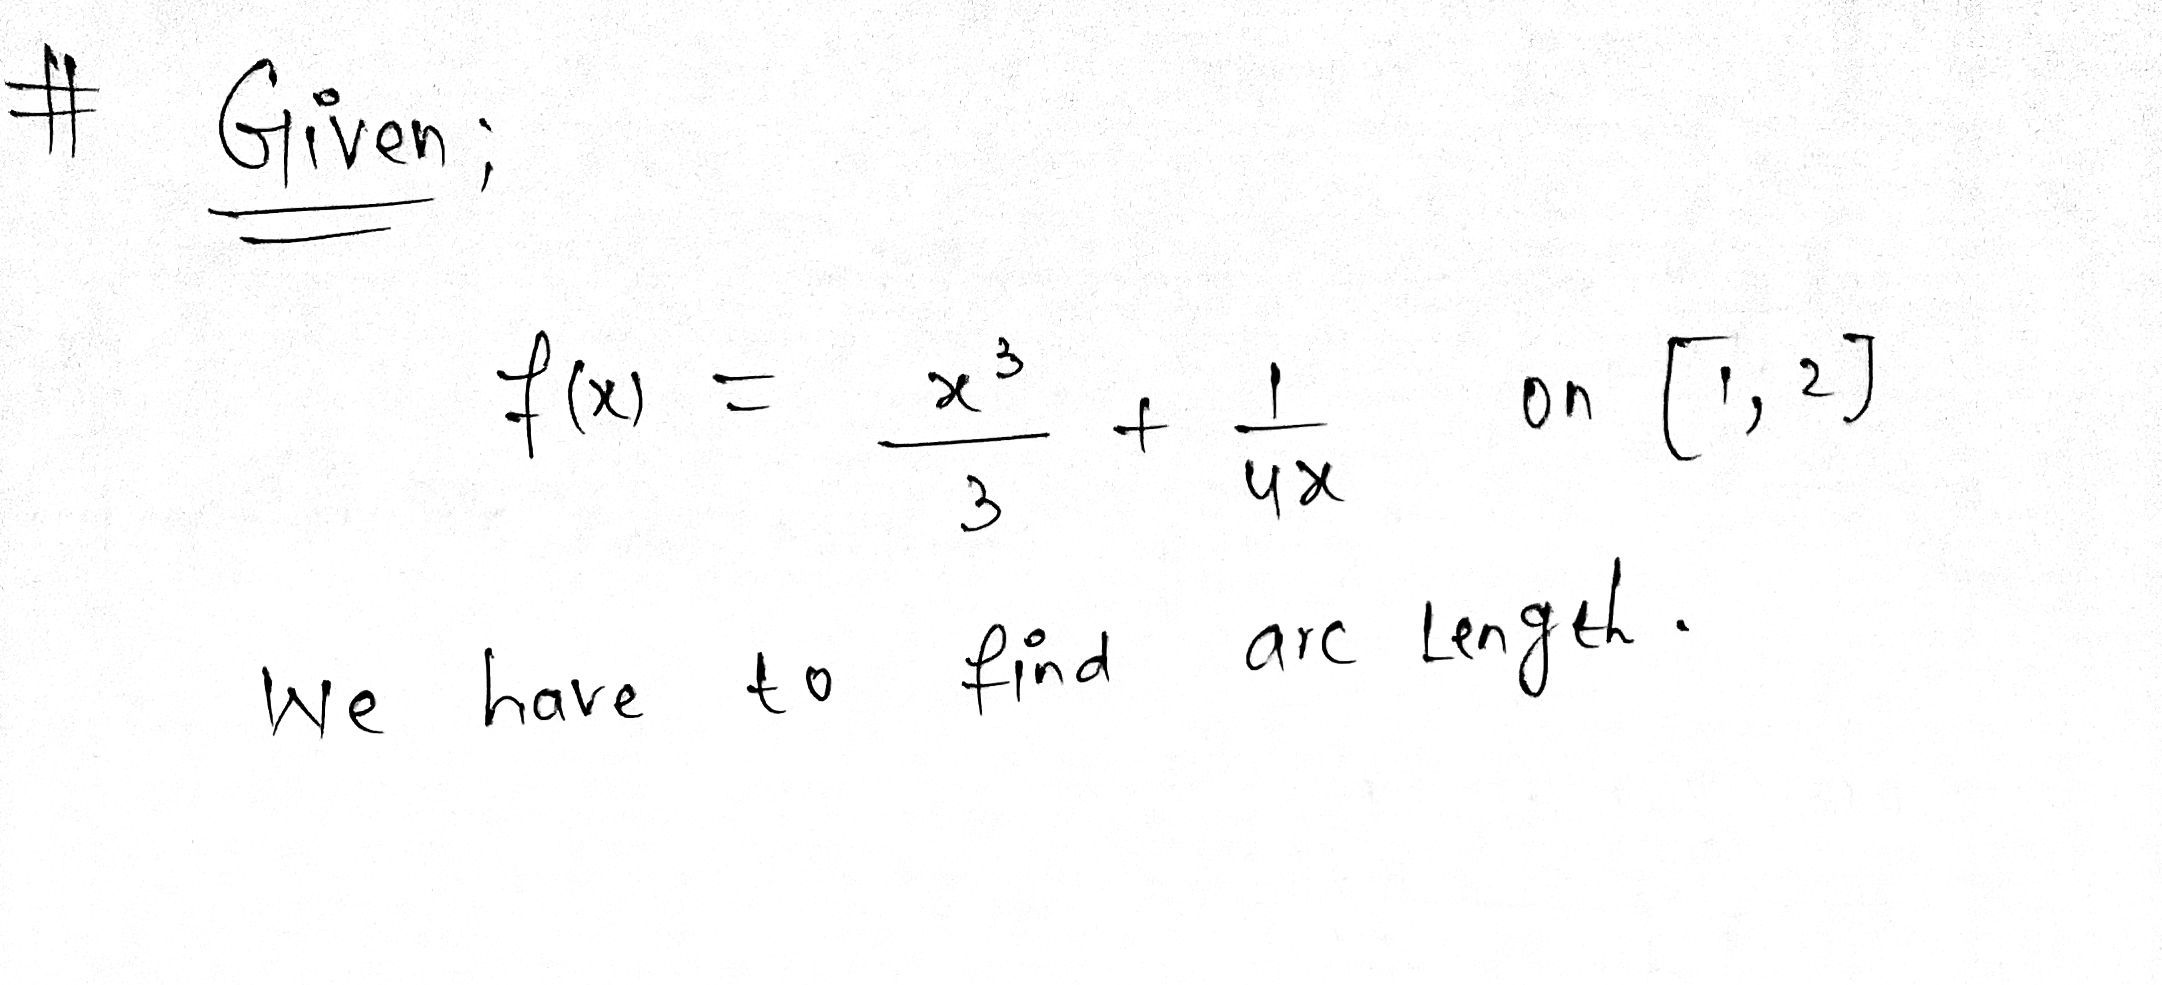 # Given;
f(x) = x³/3 + 1/4x on [1, 2]
We have to find arc Length.